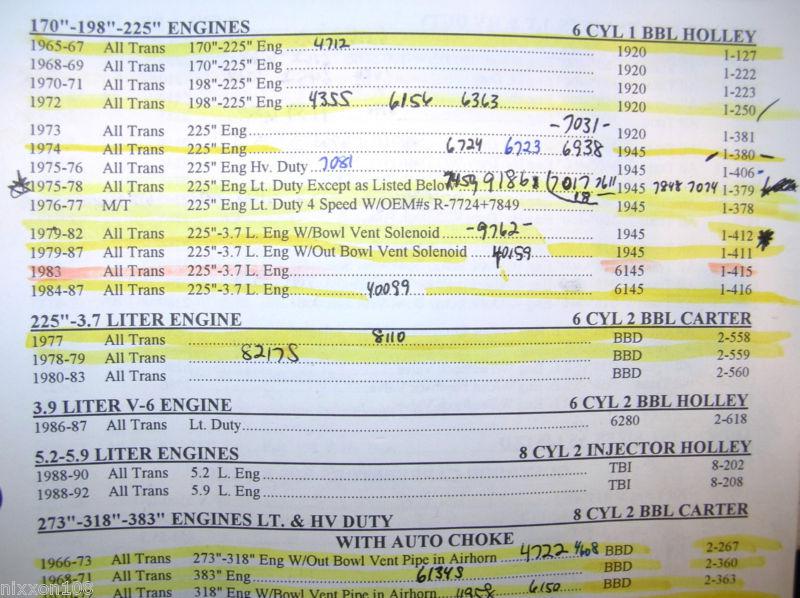 170"-198"-225" ENGINES 6 CYL 1 BBL HOLLEY
1965-67 All Trans 170"-225" Eng 4712 1920 1-127
1968-69 All Trans 170"-225" Eng 1920 1-222
1970-71 All Trans 198"-225" Eng 1920 1-223
1972 All Trans 198"-225" Eng 4355 6156 6363 1920 1-250
1973 All Trans 225" Eng -7031- 1920 1-381
1974 All Trans 225" Eng 6724 6723 6938 1945 1-380
1975-76 All Trans 225" Eng Hv. Duty 7081 1945 1-406
1975-78 All Trans 225" Eng Lt. Duty Except as Listed Below 9186 7017 7611 1945 7848 7074 1-379
1976-77 M/T 225" Eng Lt. Duty 4 Speed W/OEM#s R-7724+7849 18 1945 1-378
1979-82 All Trans 225"-3.7 L. Eng W/Bowl Vent Solenoid -9762- 1945 1-412
1979-87 All Trans 225"-3.7 L. Eng W/Out Bowl Vent Solenoid 40159 1945 1-411
1983 All Trans 225"-3.7 L. Eng 6145 1-415
1984-87 All Trans 225"-3.7 L. Eng 40099 6145 1-416
225"-3.7 LITER ENGINE 6 CYL 2 BBL CARTER
1977 All Trans 8110 BBD 2-558
1978-79 All Trans 8217S BBD 2-559
1980-83 All Trans BBD 2-560
3.9 LITER V-6 ENGINE 6 CYL 2 BBL HOLLEY
1986-87 All Trans Lt. Duty 6280 2-618
5.2-5.9 LITER ENGINES 8 CYL 2 INJECTOR HOLLEY
1988-90 All Trans 5.2 L. Eng TBI 8-202
1988-92 All Trans 5.9 L. Eng TBI 8-208
273"-318"-383" ENGINES LT. & HV DUTY 8 CYL 2 BBL CARTER
WITH AUTO CHOKE
1966-73 All Trans 273"-318" Eng W/Out Bowl Vent Pipe in Airhorn 4722 4608 BBD 2-267
1968-71 All Trans 383" Eng 6134S BBD 2-360
All Trans 318" Eng W/Bowl Vent Pipe in Airhorn 4958 6150 BBD 2-363
nixxon108